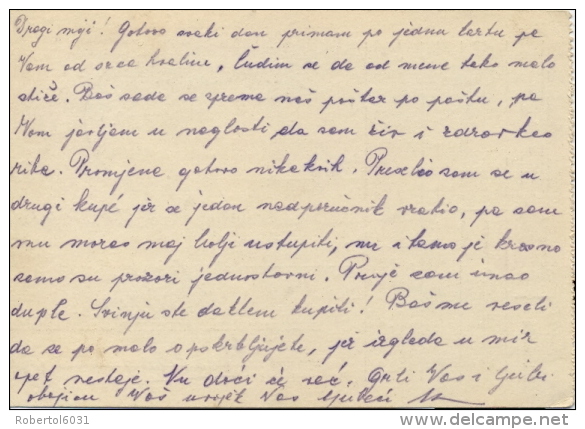 Dragi moji! Gotovo svaki dan primam po jednu kartu pa
Vam od srca hvalim, čudim se da od mene tako malo
stiže. Baš sada se sprema naš poštar po poštu, pa
Vam javljam u naglosti da sam živ i zdrav kao
riba. Promjena gotovo nikakvih. Preselio sam se u
drugi kupé jer se jedan nadporučnik vratio, pa sam
mu morao moj bolji ustupiti, no i tamo je krasno
samo su prozori jednostavni. Prije sam imao
duple. Svinju ste daklem kupili! Baš me veseli
da se po malo opskrbljujete, jer izgleda u mir
opet nestaje. Nu doći će već. Grli Vas i ljubi
Vaš uvijek Vas ljubeći
Roberto16031
delcampe.net